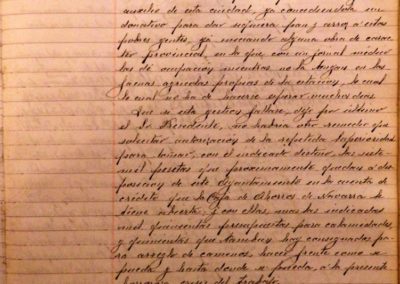 auxilio de esta ciudad, ya concediendole un
donativo para dar siquiera pan y arroz a estas
pobres gentes, ya iniciando alguna obra de carac-
ter provincial, en la que, con un jornal modico
las de ocupación mientras no la tengan en las
faenas agricolas propias de la estación, lo cual
lo cual no ha de hacerse esperar muchos dias.
Que si esta gestion fallase, dijo por ultimo
el Sr. Presidente, no habria otro remedio que
solicitar autorización de la repetida Superioridad
para tomar, con el indicado destino, las siete
mil pesetas que proximamente quedan a dis-
posición de este Ayuntamiento en la cuenta de
crédito que la Caja de Ahorros de Navarra le
tiene abierta; y con ellas mas las indicadas
mil quinientas presupuestas para calamidades
y quinientas que tambien hay consignadas pa-
ra arreglo de caminos, hacer frente como se
pueda y hasta donde se pueda, a la presente
crisis del trabajo